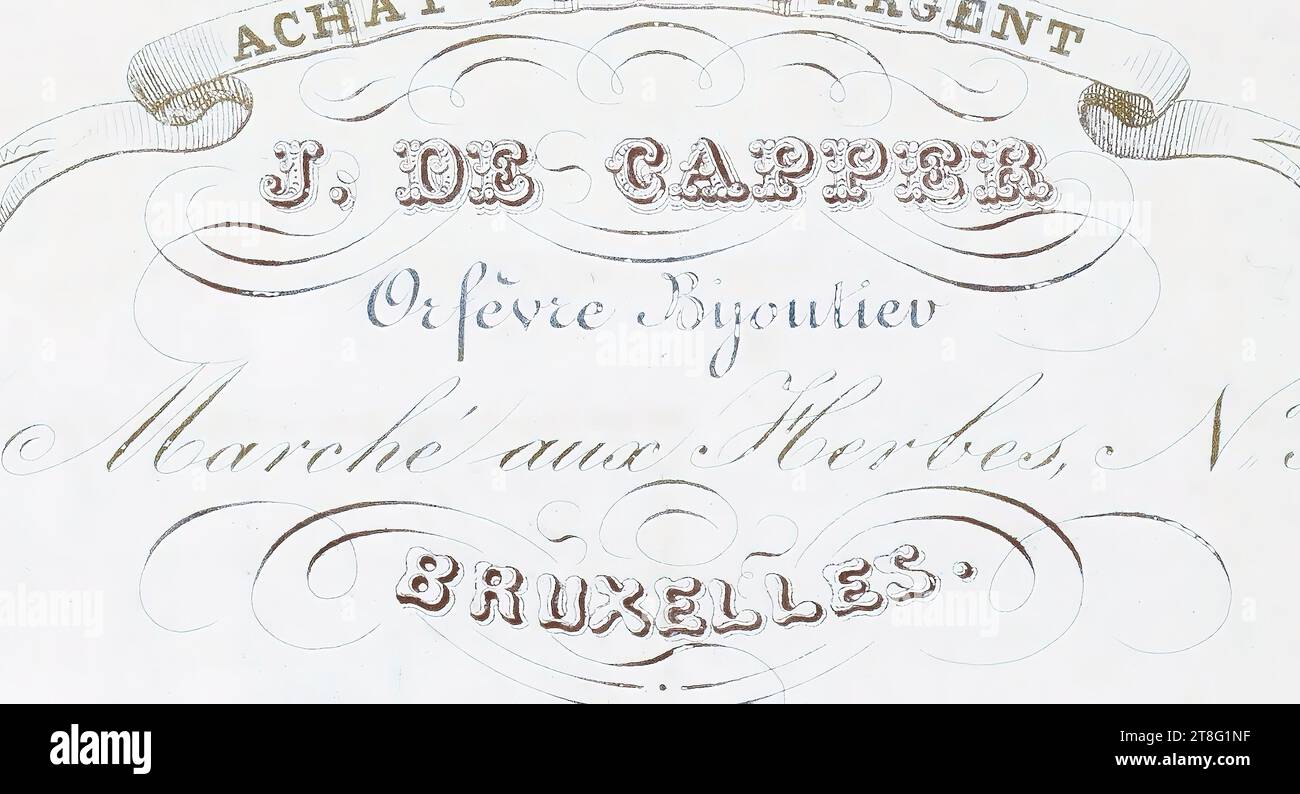 ACHAT
J. DE CAPPER
Orfèvre Bijoutier
Marché aux Herbes, N.
BRUXELLES.
alamy
Image ID: T8G1NF
www.alamy.com